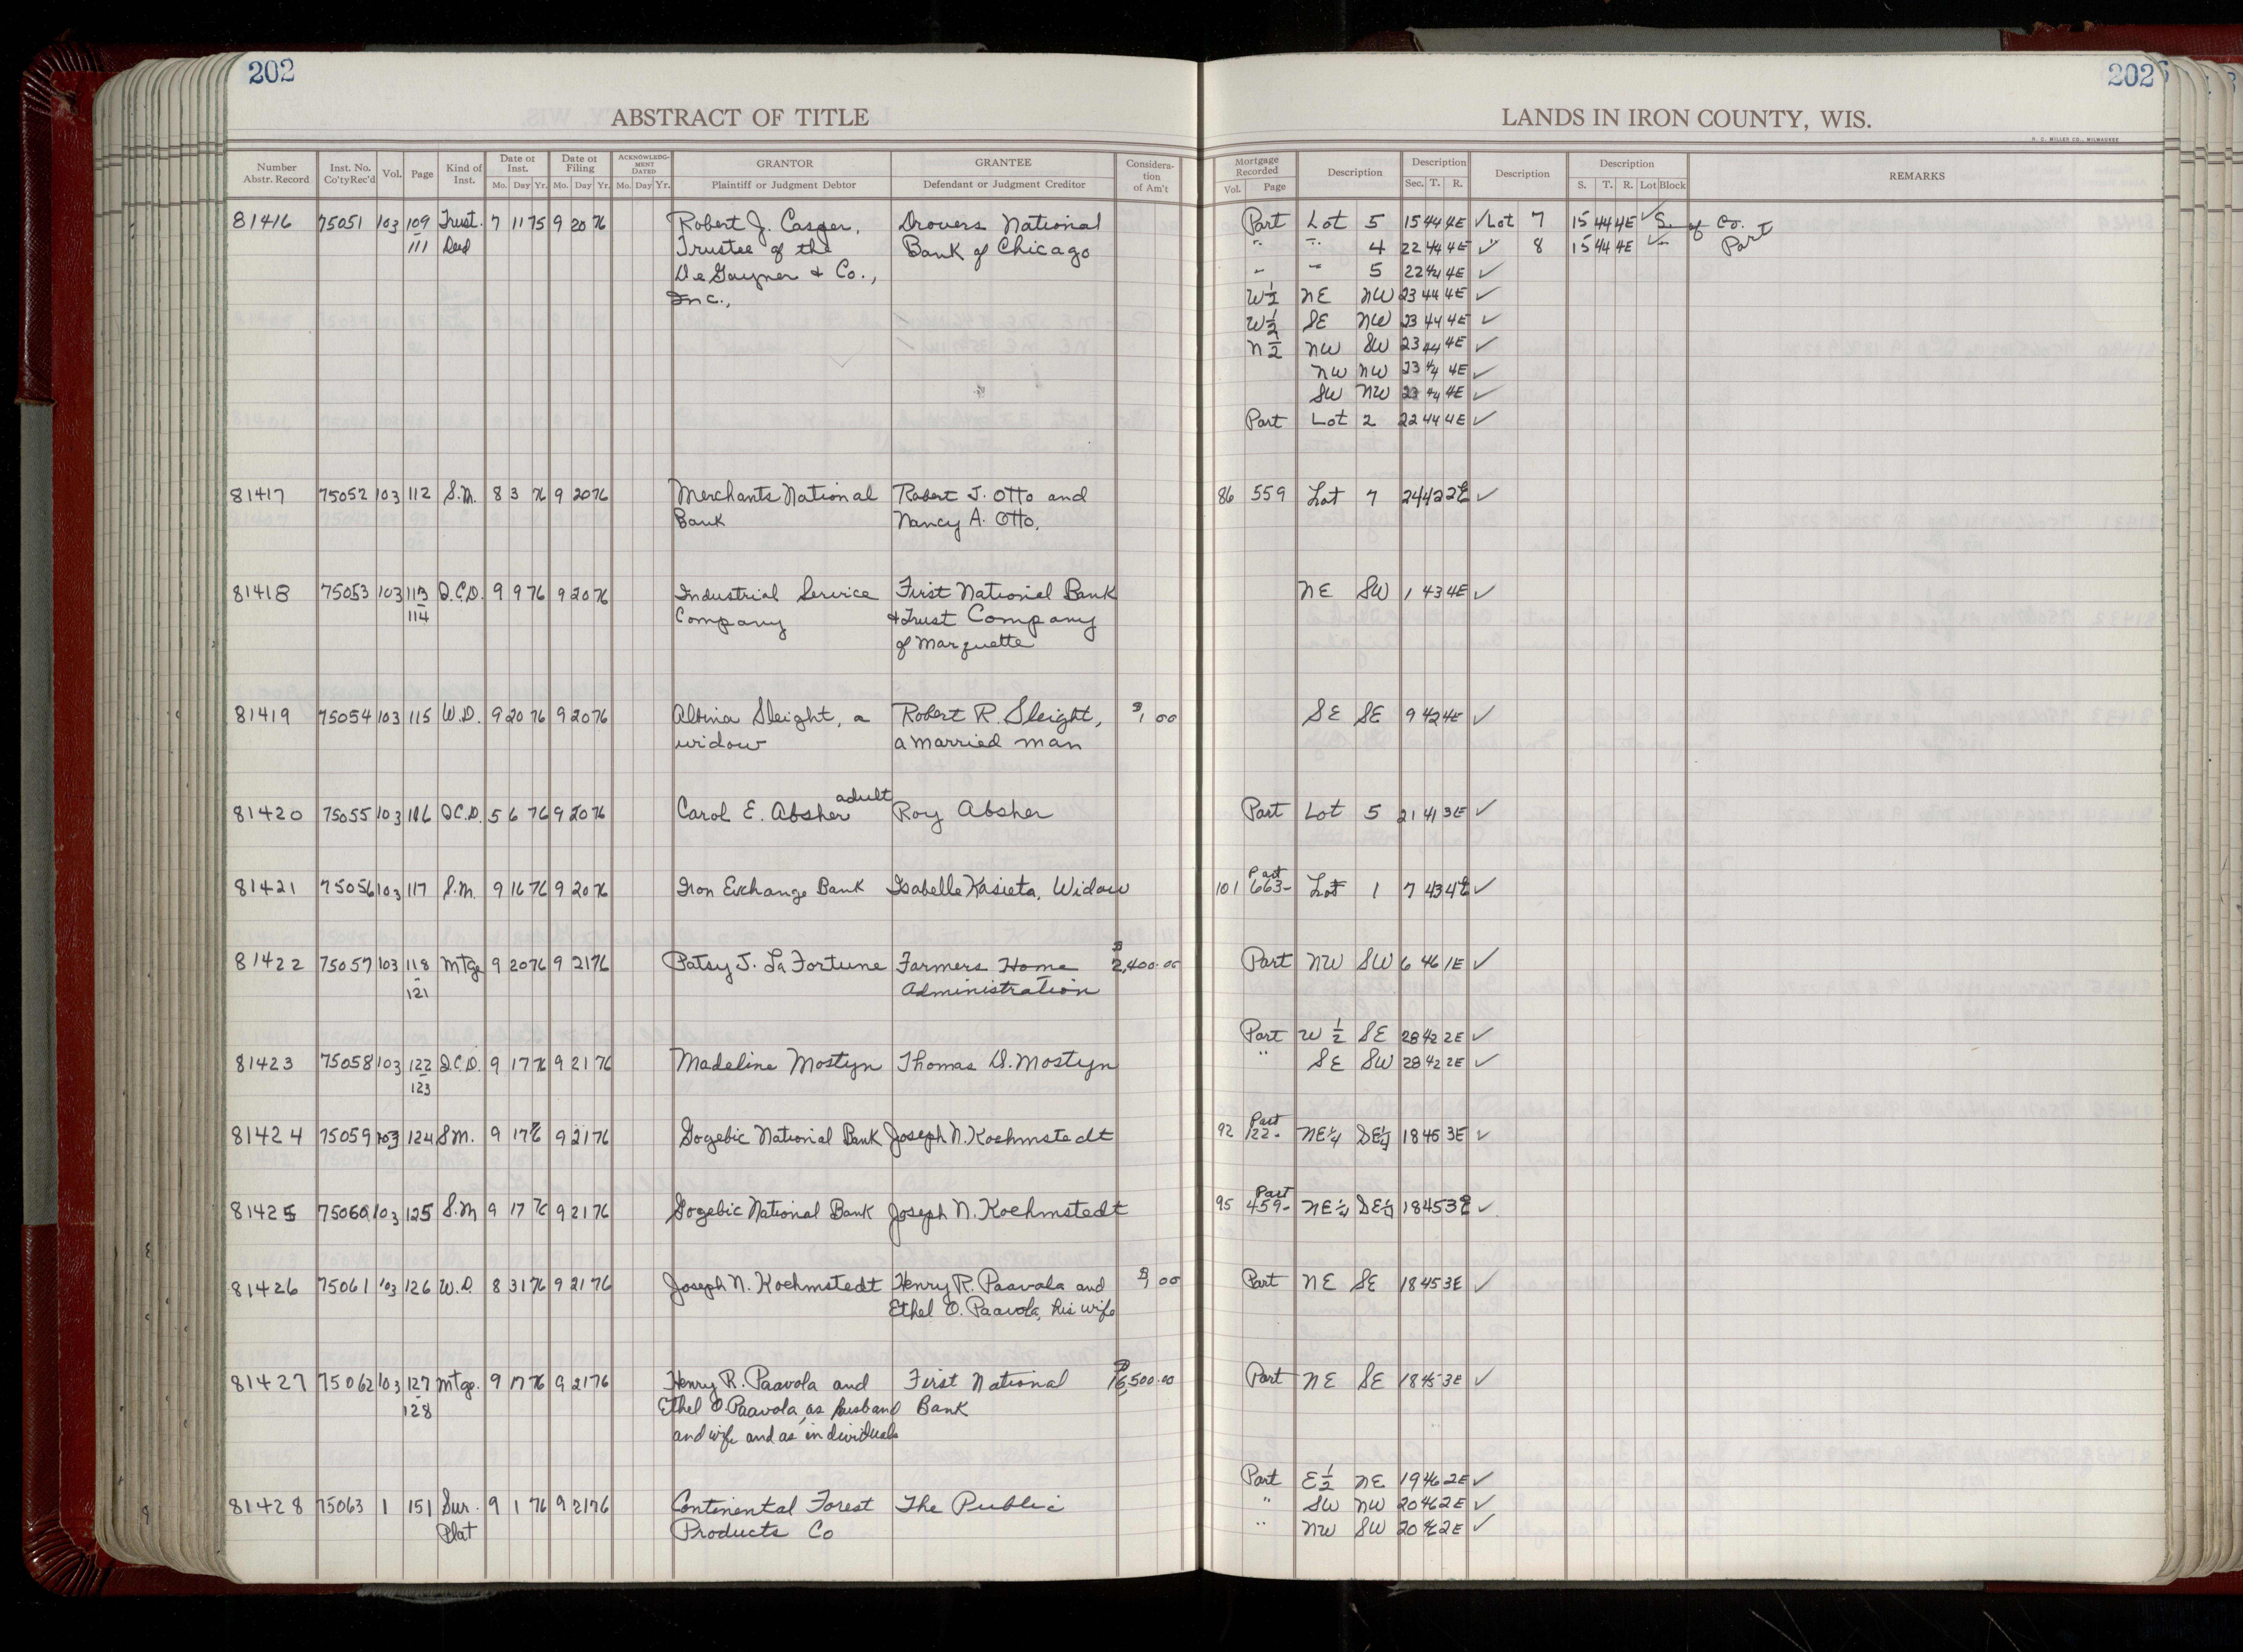 202
ABSTRACT OF TITLE
Number Abstr. Record | Inst. No. Co'ty Rec'd | Vol. | Page | Kind of Inst. | Date of Inst. Mo. Day Yr. | Date of Filing Mo. Day Yr. | ACKNOWLEDG-MENT DATED Mo. Day Yr. | GRANTOR Plaintiff or Judgment Debtor | GRANTEE Defendant or Judgment Creditor | Considera-tion of Am't
81416 75051 103 109 Trust. 7 11 75 9 20 76 Robert J. Casper, Drovers National
111 Deed Trustee of the Bank of Chicago
De Gayner & Co.,
Inc.,
81417 75052 103 112 S.M. 8 3 76 9 20 76 Merchants National Robert J. Otto and
Bank Nancy A. Otto.
81418 75053 103 113 Q.C.D. 9 9 76 9 20 76 Industrial Service First National Bank
114 Company & Trust Company
of Marquette
81419 75054 103 115 W.D. 9 20 76 9 20 76 Albina Sleight, a Robert R. Sleight, $1 00
widow a married man
81420 75055 103 116 Q.C.D. 5 6 76 9 20 76 Carol E. Absher adult Roy Absher
81421 75056 103 117 S.M. 9 16 76 9 20 76 Iron Exchange Bank Isabelle Kasieta, Widow
81422 75057 103 118 Mtge 9 20 76 9 21 76 Patsy J. La Fortune Farmers Home $2,400.00
121 Administration
81423 75058 103 122 Q.C.D. 9 17 76 9 21 76 Madeline Mostyn Thomas D. Mostyn
123
81424 75059 103 124 S.M. 9 17 76 9 21 76 Gogebic National Bank Joseph N. Koehmstedt
81425 75060 103 125 S.M 9 17 76 9 21 76 Gogebic National Bank Joseph N. Koehmstedt
81426 75061 103 126 W.D. 8 31 76 9 21 76 Joseph N. Koehmstedt Henry R. Paavola and $1 00
Ethel O. Paavola, his wife
81427 75062 103 127 Mtge. 9 17 76 9 21 76 Henry R. Paavola and First National 500.00
128 Ethel O. Paavola, as husband Bank
and wife and as individuals
81428 75063 1 151 Sur. 9 1 76 9 21 76 Continental Forest The Public
Plat Products Co
202
LANDS IN IRON COUNTY, WIS.
H. C. MILLER CO., MILWAUKEE
Mortgage Recorded Vol. Page | Description | Description Sec. T. R. | Description | Description S. T. R. Lot Block | REMARKS
Part Lot 5 15 44 4E ✓ Lot 7 15 44 4E ✓ S. of Co.
" " 4 22 44 4E ✓ " 8 15 44 4E ✓ " Part
" " 5 22 44 4E ✓
W½ NE NW 23 44 4E ✓
W½ SE NW 23 44 4E ✓
N½ NW SW 23 44 4E ✓
NW NW 23 44 4E ✓
SW NW 23 44 4E ✓
Part Lot 2 22 44 4E ✓
86 559 Lot 7 24 42 2E ✓
NE SW 1 43 4E ✓
SE SE 9 42 4E ✓
Part Lot 5 21 41 3E ✓
Part
101 663- Lot 1 7 43 4E ✓
Part NW SW 6 46 1E ✓
Part W½ SE 28 42 2E ✓
" SE SW 28 42 2E ✓
Part
92 122- NE¼ SE¼ 18 45 3E ✓
Part
95 459- NE¼ SE¼ 18 45 3E ✓
Part NE SE 18 45 3E ✓
Part NE SE 18 45 3E ✓
Part E½ NE 19 46 2E ✓
" SW NW 20 46 2E ✓
" NW SW 20 46 2E ✓